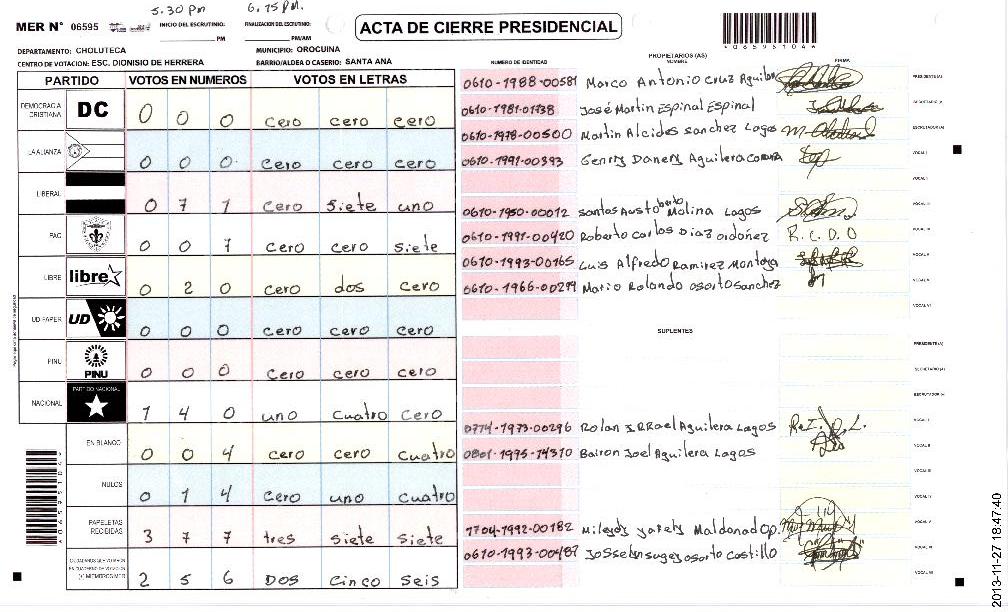 5.30 PM 6.15 PM.
MER N° 06595 INICIO DEL ESCRUTINIO: PM FINALIZACION DEL ESCRUTINIO: PM/AM
ACTA DE CIERRE PRESIDENCIAL
DEPARTAMENTO: CHOLUTECA MUNICIPIO: OROCUINA
CENTRO DE VOTACION: ESC. DIONISIO DE HERRERA BARRIO/ALDEA O CASERIO: SANTA ANA
PARTIDO VOTOS EN NUMEROS VOTOS EN LETRAS
DEMOCRACIA CRISTIANA DC 0 0 0 cero cero cero
LA ALIANZA 0 0 0 cero cero cero
LIBERAL 0 7 1 cero siete uno
PAC 0 0 7 cero cero siete
LIBRE libre 0 2 0 cero dos cero
UD FAPER UD 0 0 0 cero cero cero
PINU PINU 0 0 0 cero cero cero
NACIONAL PARTIDO NACIONAL 1 4 0 uno cuatro cero
EN BLANCO 0 0 4 cero cero cuatro
NULOS 0 1 4 cero uno cuatro
PAPELETAS RECIBIDAS 3 7 7 tres siete siete
CIUDADANOS QUE VOTARON EN CUADERNO DE VOTACION (+) MIEMBROS MER 2 5 6 DOS cinco seis
PROPIETARIOS (AS)
NUMERO DE IDENTIDAD NOMBRE FIRMA
0610-1988-00581 Marco Antonio Cruz Aguilar PRESIDENTE(A)
0610-1981-01738 José Martin Espinal Espinal SECRETARIO (A)
0610-1978-00500 Martin Alcides sanchez Lagos ESCRUTADOR (A)
0610-1991-00393 Genrry Danery Aguilera VOCAL I
VOCAL II
0610-1950-00012 santos Austoberto Molina Lagos VOCAL III
0610-1991-00420 Roberto Carlos Diaz ordoñez R.C.D.O VOCAL IV
0610-1993-00165 Luis Alfredo Ramirez Montoya VOCAL V
0610-1966-00299 Mario Rolando osorto sanchez
VOCAL VII
SUPLENTES
PRESIDENTE (A)
SECRETARIO (A)
ESCRUTADOR (A)
0774-1973-00296 Rolan Aguilera Lagos VOCAL I
0801-1995-14310 Bairon Joel Aguilera Lagos VOCAL II
VOCAL III
VOCAL IV
1704-1992-00182 Mileydy Yarely Maldonado p. VOCAL V
0610-1993-00487 osorto costillo VOCAL VI
VOCAL VII
2013-11-27 18:47:40